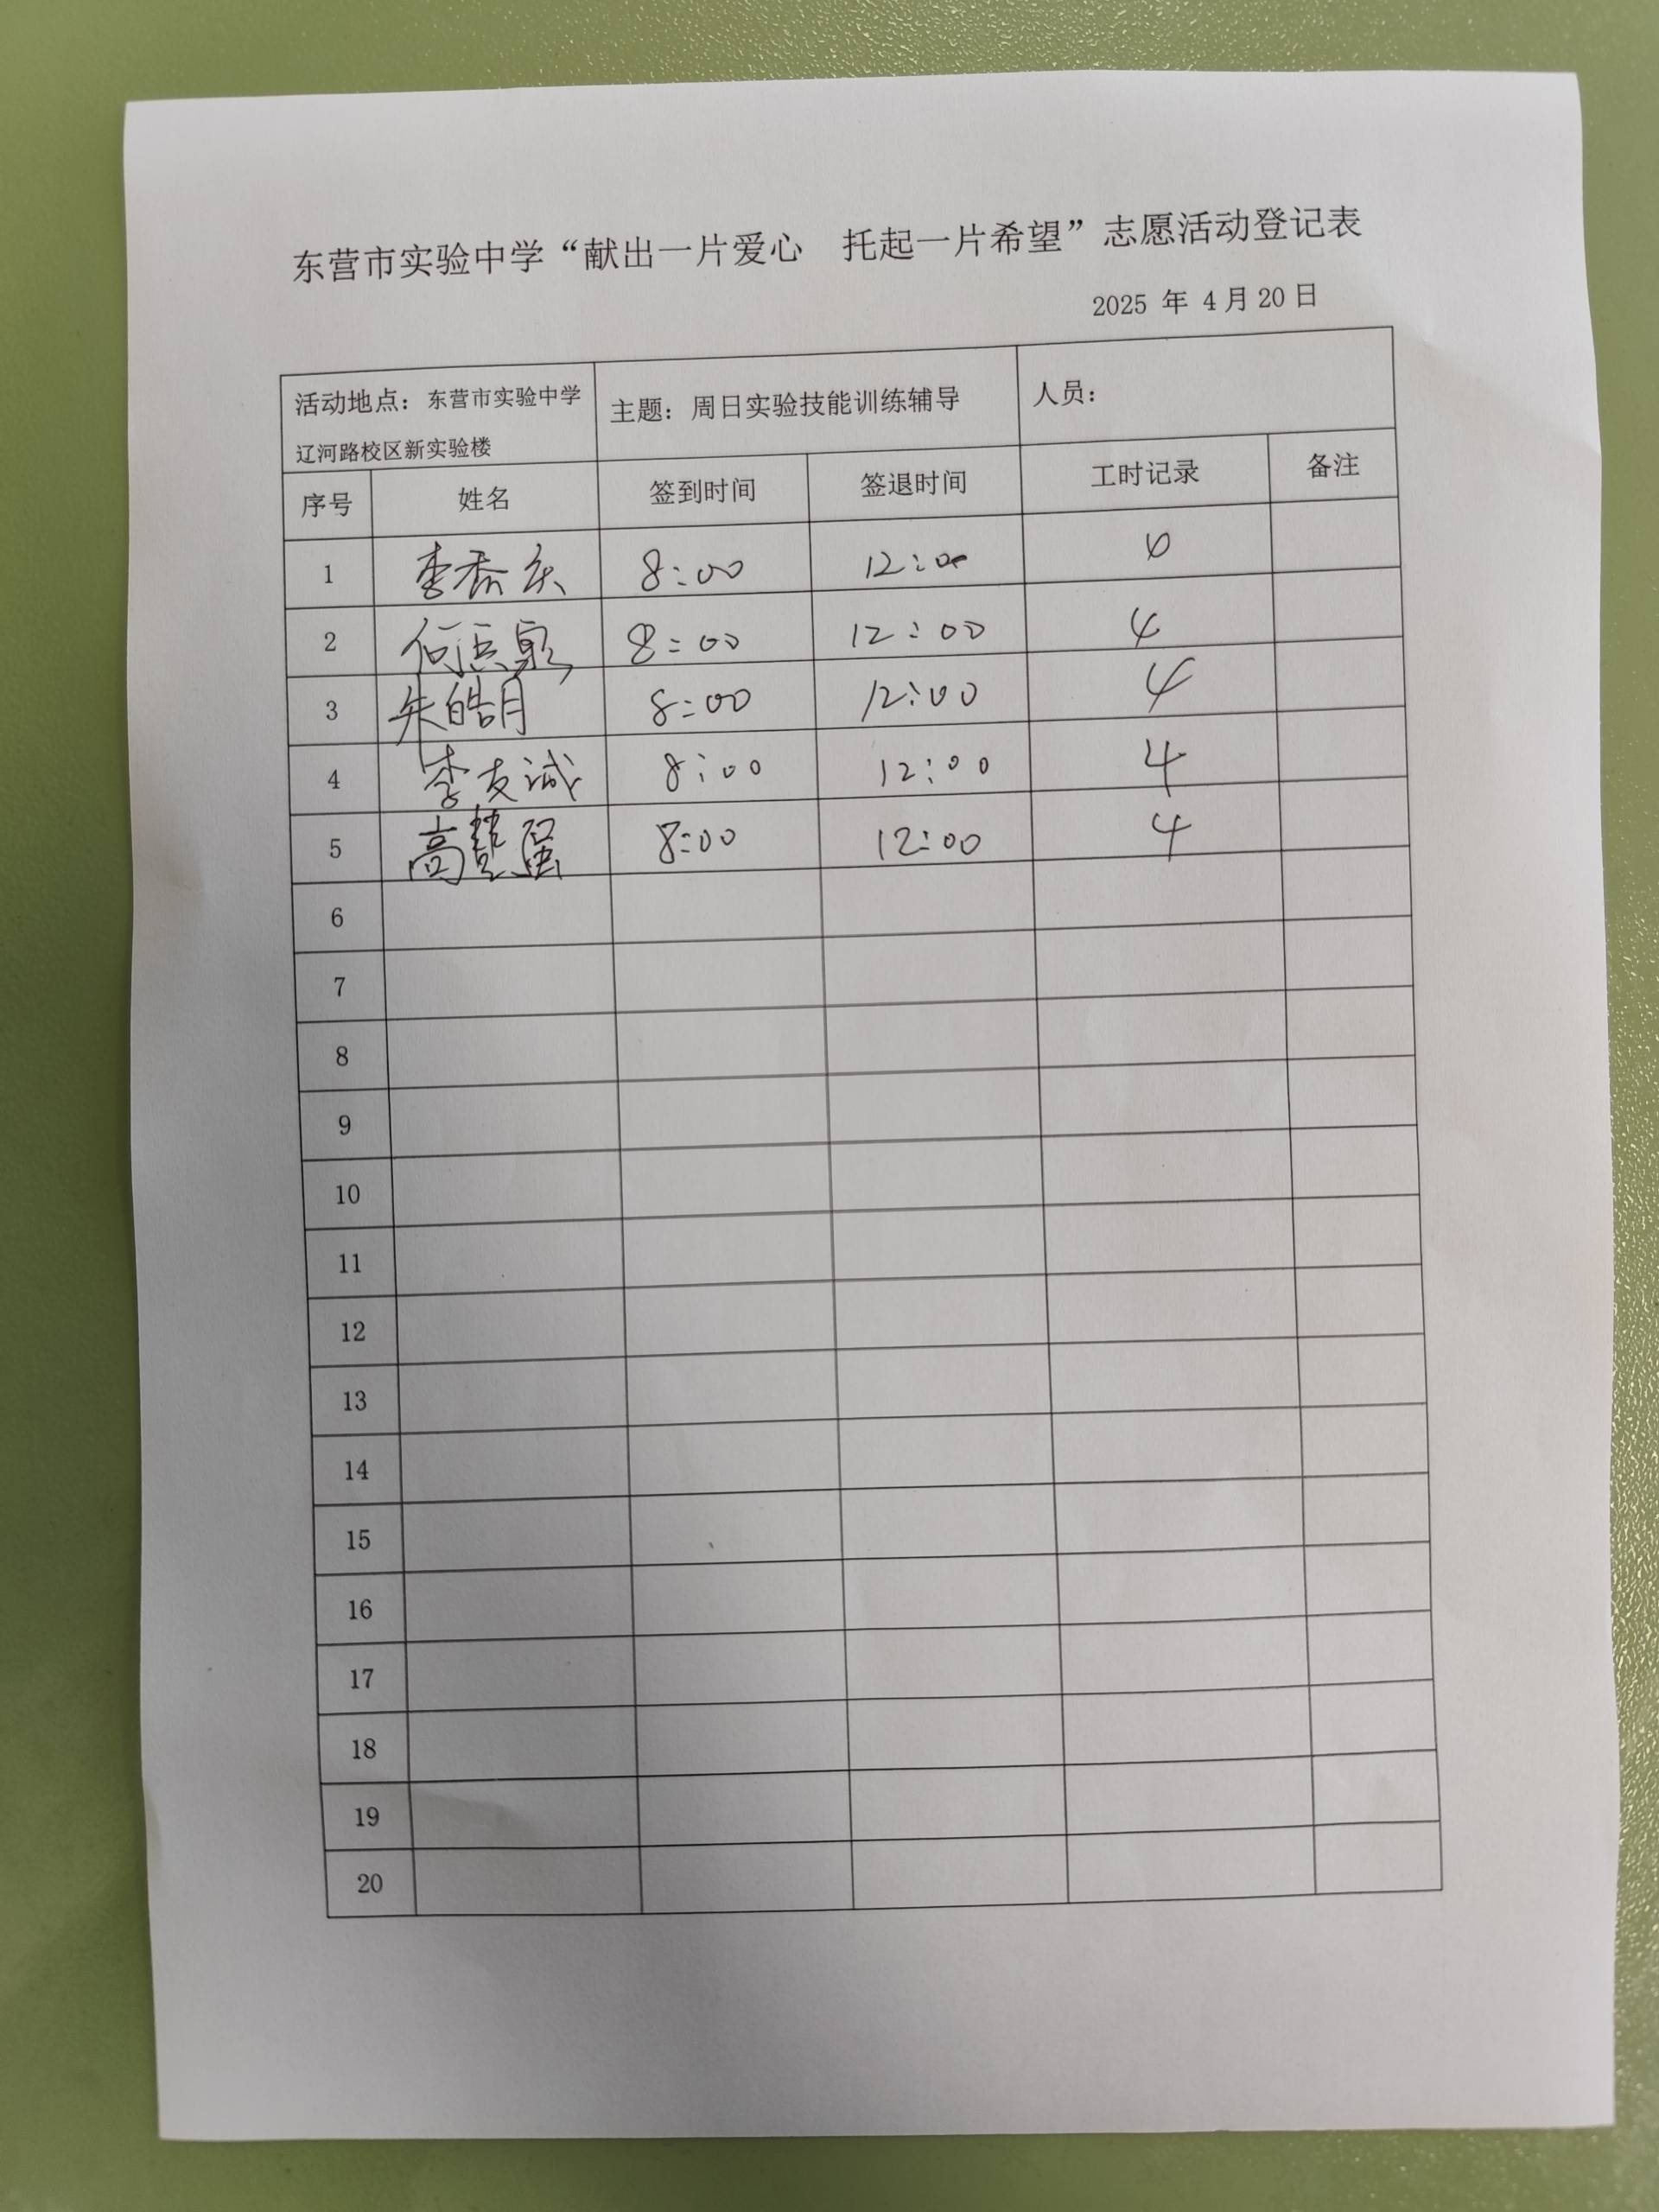 东营市实验中学“献出一片爱心　托起一片希望”志愿活动登记表
2025 年 4月20日
活动地点：东营市实验中学 主题：周日实验技能训练辅导 人员：
辽河路校区新实验楼
序号 姓名 签到时间 签退时间 工时记录 备注
1 8:00 12:00
2 8:00 12:00 4
3 朱皓月 8:00 12:00 4
4 李友诚 8:00 12:00 4
5 8:00 12:00 4
6
7
8
9
10
11
12
13
14
15
16
17
18
19
20